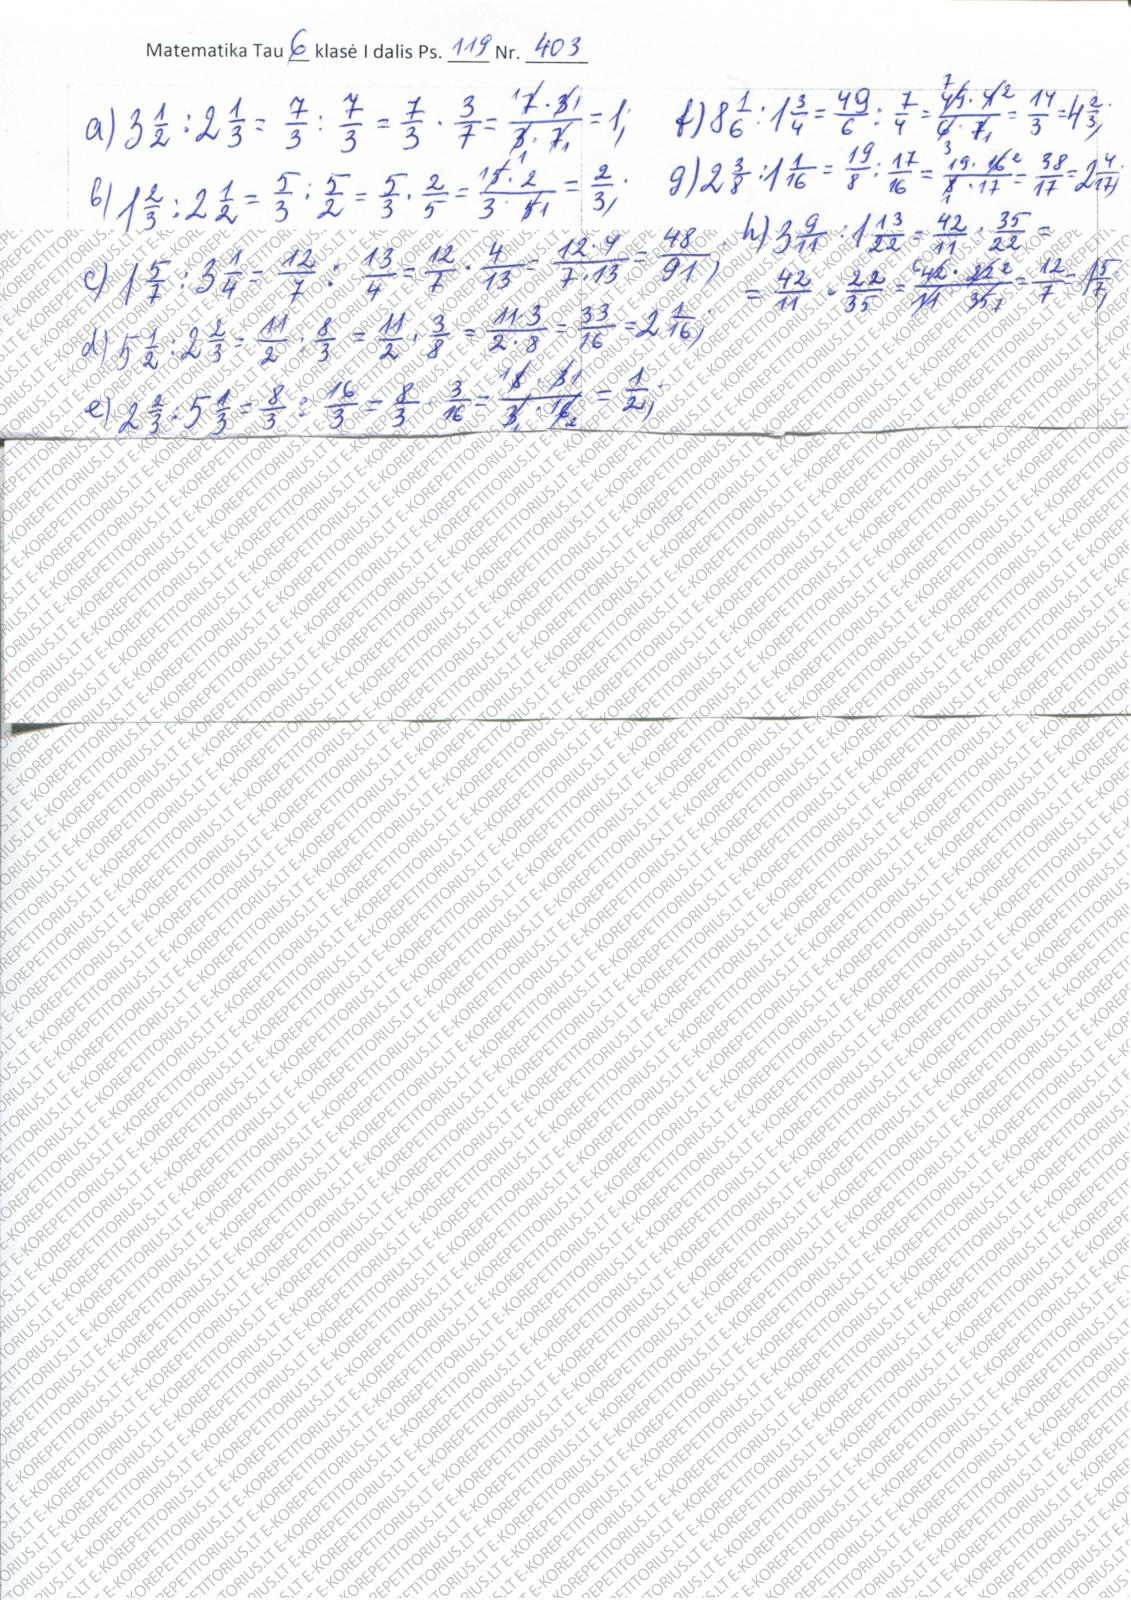 Matematika Tau 6 klasė I dalis Ps. 119 Nr. 403
a) 3 1/2 : 2 1/3 = 7/3 : 7/3 = 7/3 · 3/7 = 7·3/3·7 = 1;
b) 1 2/3 : 2 1/2 = 5/3 : 5/2 = 5/3 · 2/5 = 5·2/3·5 = 2/3;
c) 1 5/7 : 3 1/4 = 12/7 : 13/4 = 12/7 · 4/13 = 12·4/7·13 = 48/91;
d) 5 1/2 : 2 2/3 = 11/2 : 8/3 = 11/2 · 3/8 = 11·3/2·8 = 33/16 = 2 1/16;
e) 2 2/3 : 5 1/3 = 8/3 : 16/3 = 8/3 · 3/16 = 8·3/3·16 = 1/2;
f) 8 1/6 : 1 3/4 = 49/6 : 7/4 = 49·4/6·7 = 14/3 = 4 2/3;
g) 2 3/8 : 1 1/16 = 19/8 : 17/16 = 19·16/8·17 = 38/17 = 2 4/17;
h) 3 9/11 : 1 13/22 = 42/11 : 35/22 =
= 42/11 · 22/35 = 42·22/11·35 = 12/7 = 1 5/7;
E-KOREPETITORIUS.LT